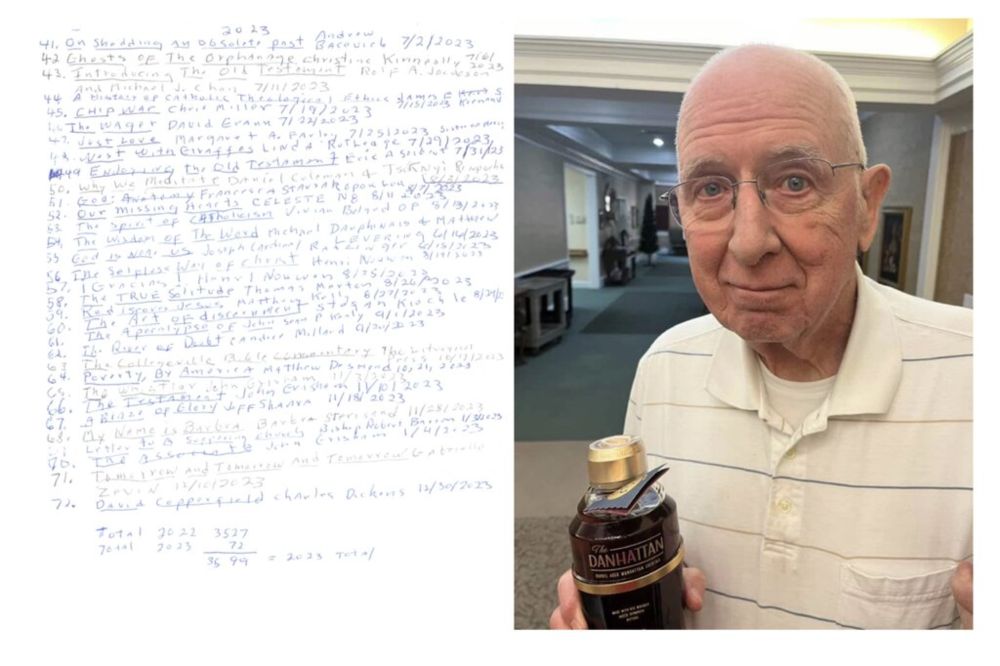 2023
41. On Shedding an Obsolete past Andrew
Bacevich 7/2/2023
42 Ghosts of The Orphanage Christine Kenneally 7/6/
2023
43. Introducing The Old Testament Rolf A. Jacobson
and Michael J. Chan 7/11/2023
44 A History of Catholic Theological Ethics James F
45. CHIP WAR Chris Miller 7/19/2023
The WAGER DAVID Grann 7/22/2023
47. Just Love Margaret A. Farley 7/25/2023
West With Giraffes LINDA Rutledge 7/29/2023
49 the Old Testament Eric A 7/31/23
50. Why We Meditate Daniel Goleman & Tsoknyi Rinpoche
51. God: Anatomy Francesca Stavrakopoulou 8/7/2023
52. Our Missing Hearts CELESTE NG 8/11 2023
53. The Spirit of Catholicism Vivian Boland OP
54. The Wisdom of The Word Michael Dauphinais & MATTHEW
LEVERING
55 God is Near us Joseph Cardinal Ratzinger
56 The Selfless Way of Christ Henri Nouwen
57. Henri Nouwen 8/25/2023
58. The TRUE Solitude Thomas Merton 8/26/2023
59. Rediscover Jesus Matthew 8/27/2023
60. The Art of discernment Stefan Kiechle
61. The Apocalypse of John Sean P Kealy 9/1/2023
62. The River of Doubt Candice Millard
63 The Collegeville Bible Commentary
64. Poverty, By America Matthew Desmond 10, 21, 2023
65. The John Grisham
66. The Testament John Grisham 11/10/2023
67. A Blaze of Glory Jeff Shaara 11/18/2023
68. My Name is Barbra Barbra Streisand 11/28/2023
Letter To A Suffering Church Bishop Robert Barron
70. The Associate John Grisham
71. Tomorrow and Tomorrow and Tomorrow Gabrielle
Zevin 12/10/2023
72. David Copperfield Charles Dickens 12/30/2023
Total 2022 3527
Total 2023 72
3599 = 2023 Total
The
DANHATTAN
BARREL AGED MANHATTAN COCKTAIL
MADE WITH RYE WHISKEY